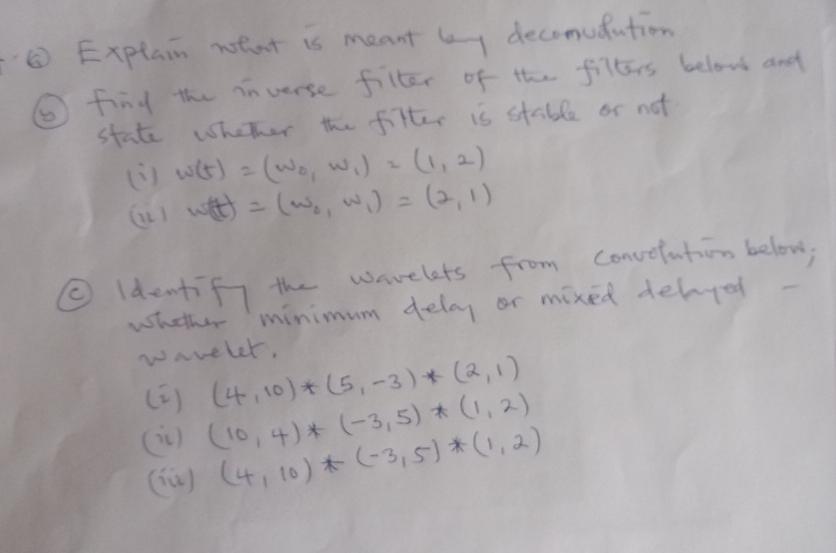 (a) Explain what is meant by deconvolution
(b) find the inverse filter of the filters below and
state whether the filter is stable or not
(i) w(t) = (w₀, w₁) = (1, 2)
(ii) w(t) = (w₀, w₁) = (2, 1)
(c) Identify the wavelets from convolution below;
whether minimum delay or mixed delayed -
wavelet.
(i) (4, 10) * (5, -3) * (2, 1)
(ii) (10, 4) * (-3, 5) * (1, 2)
(iii) (4, 10) * (-3, 5) * (1, 2)